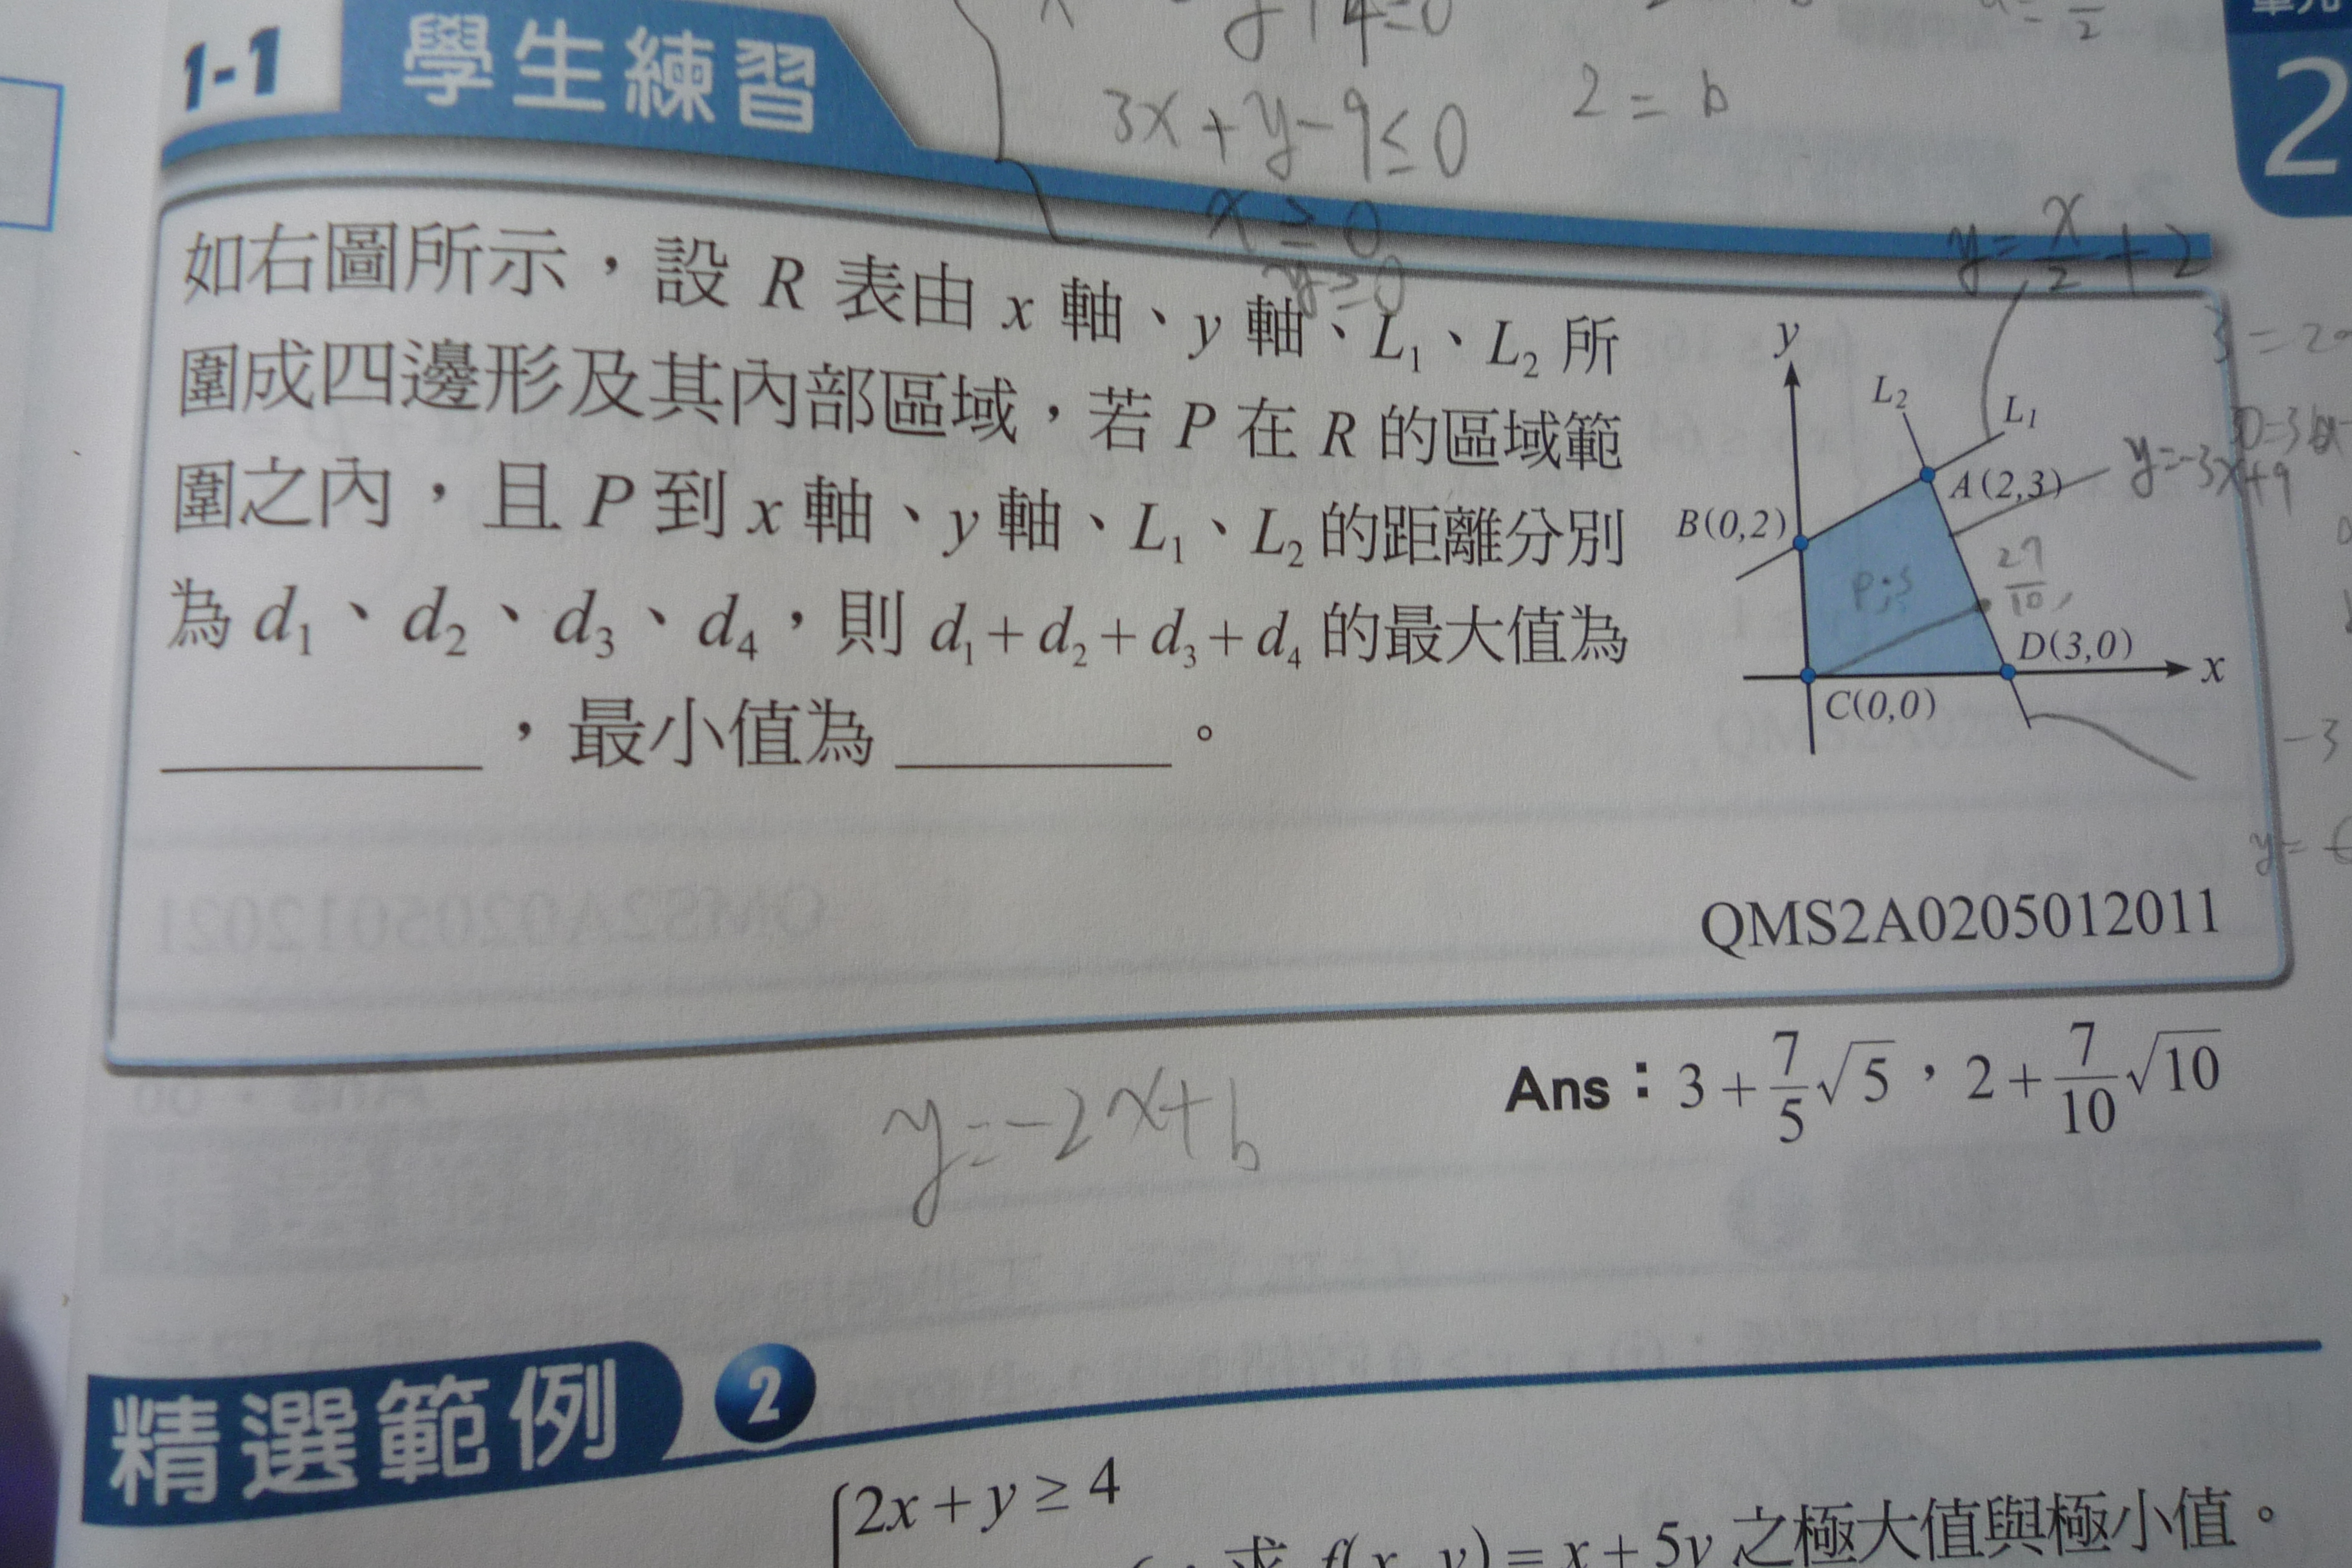 1-1 學生練習
3x+y-9≤0
2=b
x≥0
y≥0
y=x/2+2
2
如右圖所示，設 R 表由 x 軸、y 軸、L₁、L₂ 所
圍成四邊形及其內部區域，若 P 在 R 的區域範
圍之內，且 P 到 x 軸、y 軸、L₁、L₂ 的距離分別
為 d₁、d₂、d₃、d₄，則 d₁+d₂+d₃+d₄ 的最大值為
，最小值為 。
y
L₂
L₁
A(2,3)
y=-3x+9
B(0,2)
D(3,0)
x
C(0,0)
-3
QMS2A0205012011
Ans：3+7/5√5，2+7/10√10
y=-2x+b
精選範例 2
2x+y≥4
求 f(x, y)=x+5y 之極大值與極小值。